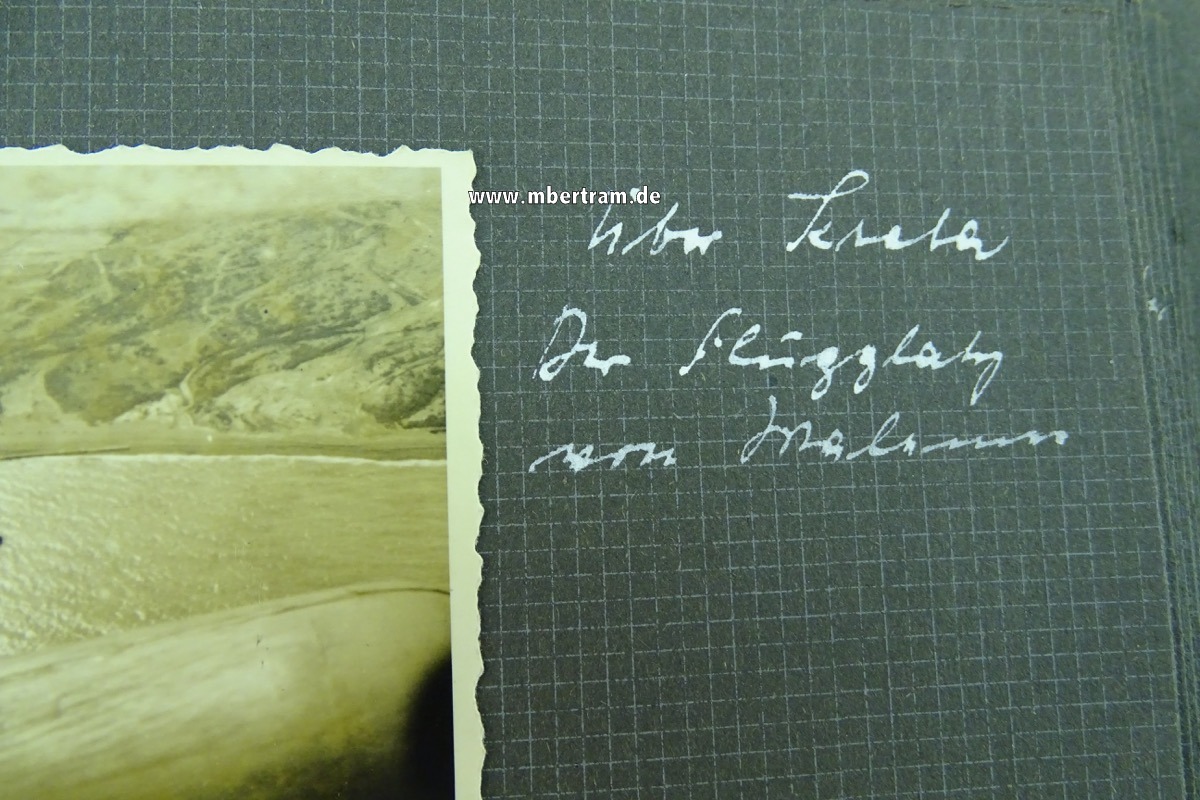 www.mbertram.de
Über Kreta
Der Flugplatz
von Malemes